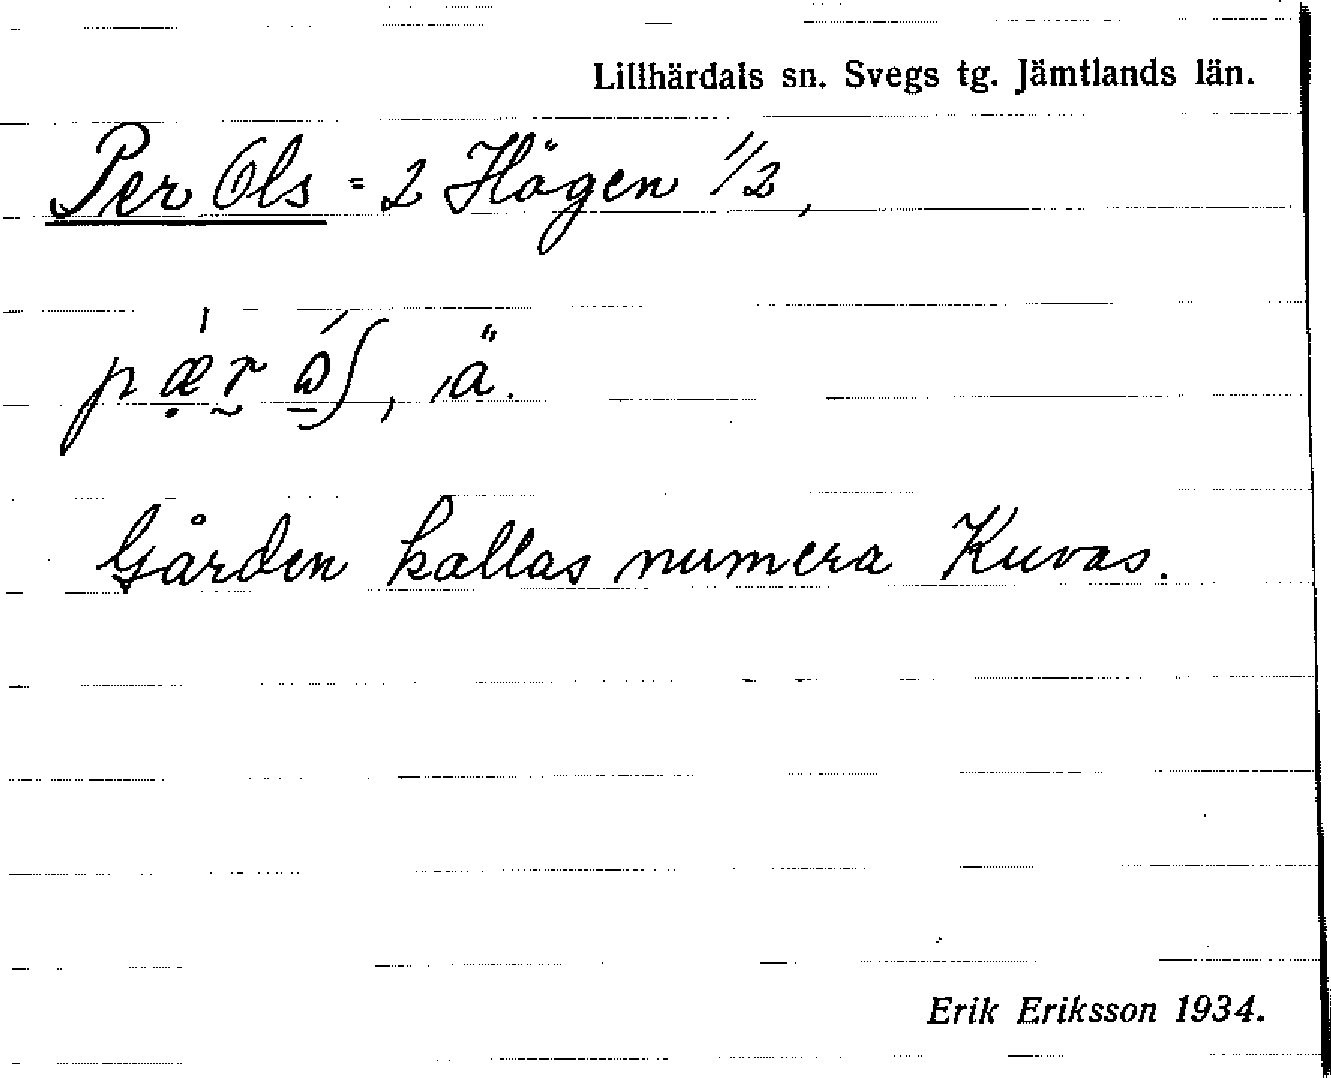 Lillhärdals sn. Svegs tg. Jämtlands län.
Per Ols = 2 Högen 1/2,
Gården kallas numera Kuvas.
Erik Eriksson 1934.